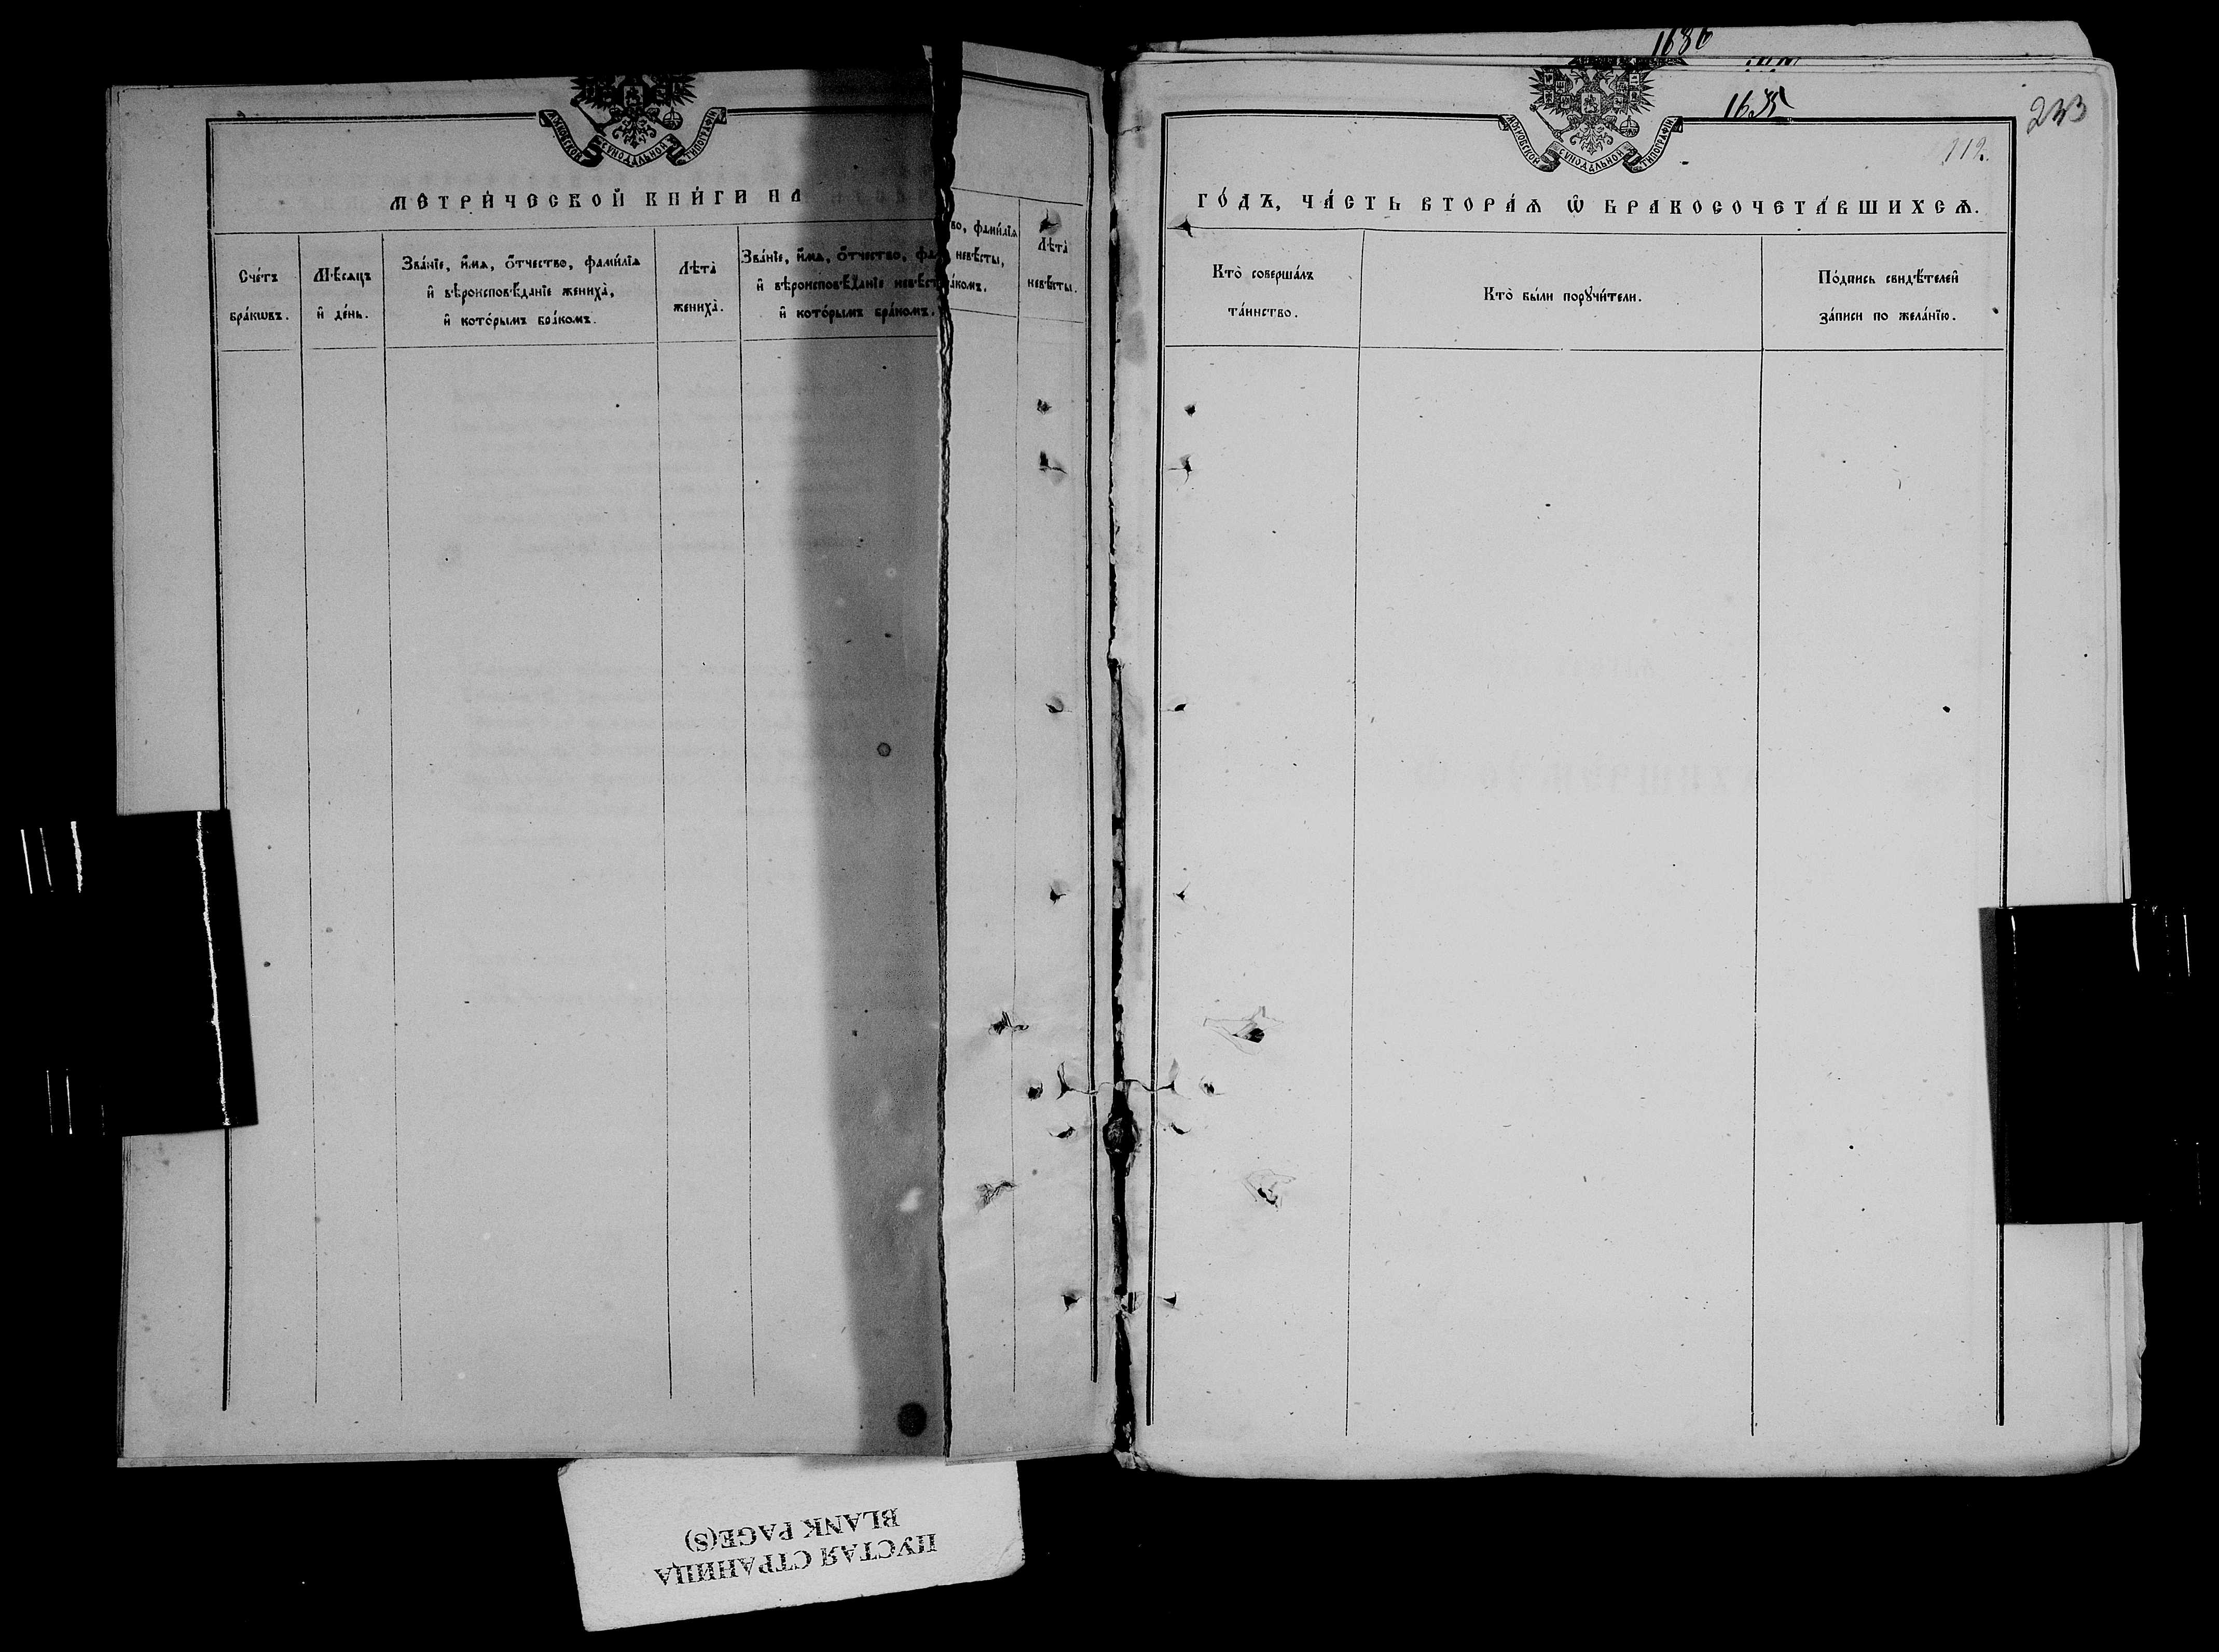 МОСКОВСКОЙ СѴНОДАЛЬНОЙ ТИПОГРАФІИ
МЕТРИ́ЧЕСКОЙ КНИ́ГИ НА
Сче́тъ
бра́кѡвъ.
Мѣ́сяцъ
и҆ де́нь.
Зва́нїе, и҆́мя, ѻ҆́тчество, фами́лїя
и҆ вѣроисповѣ́данїе жениха̀,
и҆ кото́рымъ бра́комъ.
Лѣта̀
жениха̀.
Зва́нїе, и҆́мя, ѻ҆́тчество, фа
и҆ вѣроисповѣ́данїе невѣ́ст
и҆ кото́рымъ бра́комъ.
во, фами́лїя
невѣ́сты,
а́комъ.
Лѣта̀
невѣ́сты.
1686
1685
233
119.
МОСКОВСКОЙ СѴНОДАЛЬНОЙ ТИПОГРАФІИ
ГО́ДЪ, ЧА́СТЬ ВТОРА́Ѧ Ѡ҆ БРАКОСОЧЕТА́ВШИХСѦ.
Кто̀ соверша́лъ
та́инство.
Кто̀ бы́ли порꙋчи́тели.
По́дпись свидѣ́телей
за́писи по жела́нїю.
ПУСТАЯ СТРАНИЦА
BLANK PAGE(S)